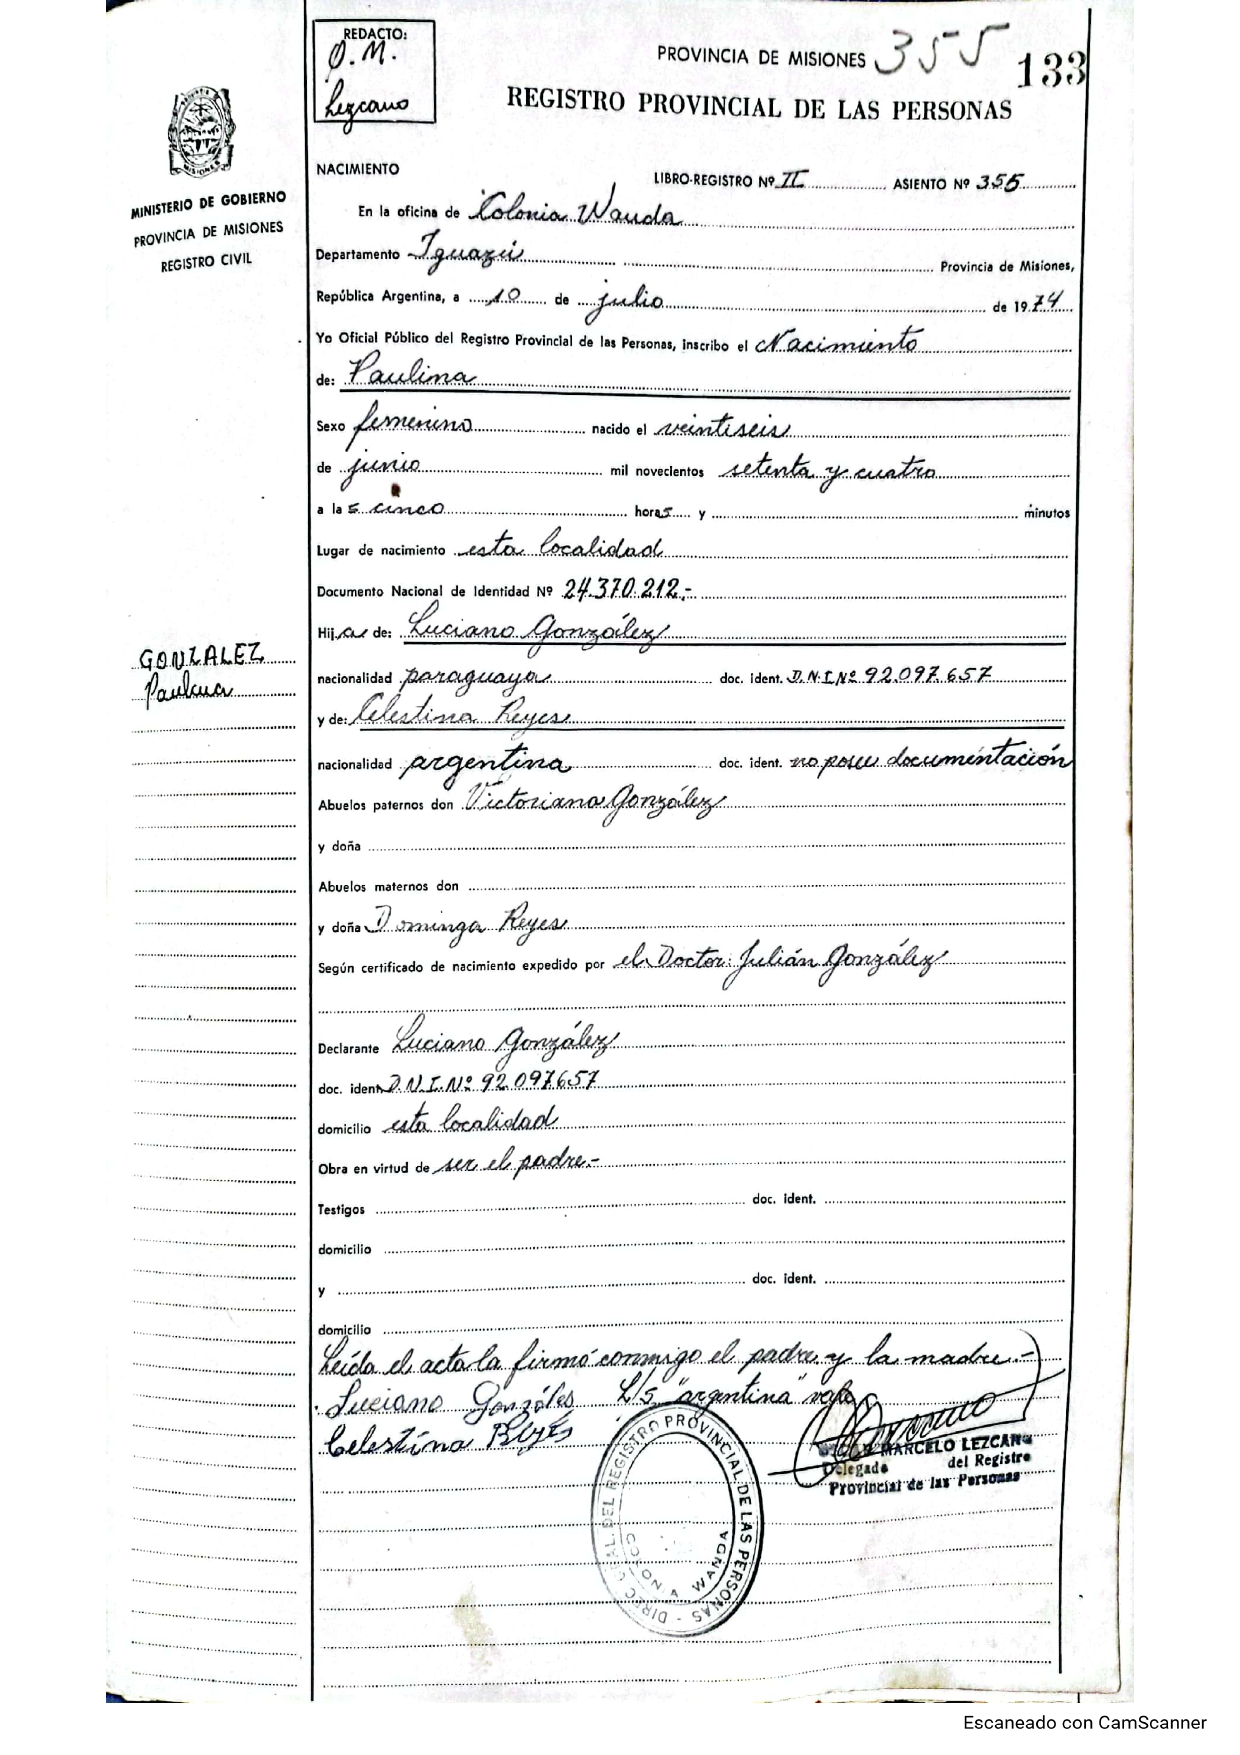 REDACTO:
O. M.
Lezcano
PROVINCIA DE MISIONES 355
133
REGISTRO PROVINCIAL DE LAS PERSONAS
MISIONES
MINISTERIO DE GOBIERNO
PROVINCIA DE MISIONES
REGISTRO CIVIL
NACIMIENTO
LIBRO-REGISTRO Nº II ASIENTO Nº 355
En la oficina de Colonia Wanda
Departamento Iguazú Provincia de Misiones,
República Argentina, a 10 de julio de 1974
Yo Oficial Público del Registro Provincial de las Personas, inscribo el Nacimiento
de: Paulina
Sexo femenino nacido el veintiseis
de junio mil novecientos setenta y cuatro
a las cinco horas y minutos
Lugar de nacimiento esta localidad
Documento Nacional de Identidad Nº 24.370.212.-
Hija de: Luciano González
GONZALEZ
Paulina
nacionalidad paraguaya doc. ident. D.N.I.Nº 92.097.657
y de: Celestina Reyes
nacionalidad argentina doc. ident. no posee documentación
Abuelos paternos don Victoriano González
y doña
Abuelos maternos don
y doña Dominga Reyes
Según certificado de nacimiento expedido por el Doctor: Julián González
Declarante Luciano González
doc. ident. D.N.I.Nº 92.097.657
domicilio esta localidad
Obra en virtud de ser el padre.-
Testigos doc. ident.
domicilio
y doc. ident.
domicilio
Leída el acta la firmó conmigo el padre y la madre.-
Luciano Gonzáles L/S "argentina" vale
Celestina Reyes
MARCELO LEZCANO
Delegado del Registro
Provincial de las Personas
DEL REGISTRO PROVINCIAL DE LAS PERSONAS
COLONIA WANDA
Escaneado con CamScanner